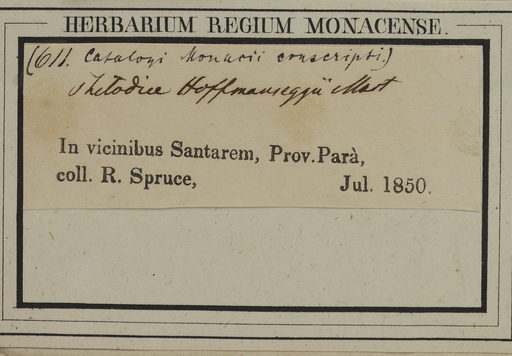 HERBARIUM REGIUM MONACENSE.
(611. Catalogi Monacii conscripti.)
Hoffmanseggii Mart
In vicinibus Santarem, Prov. Parà,
coll. R. Spruce, Jul. 1850.